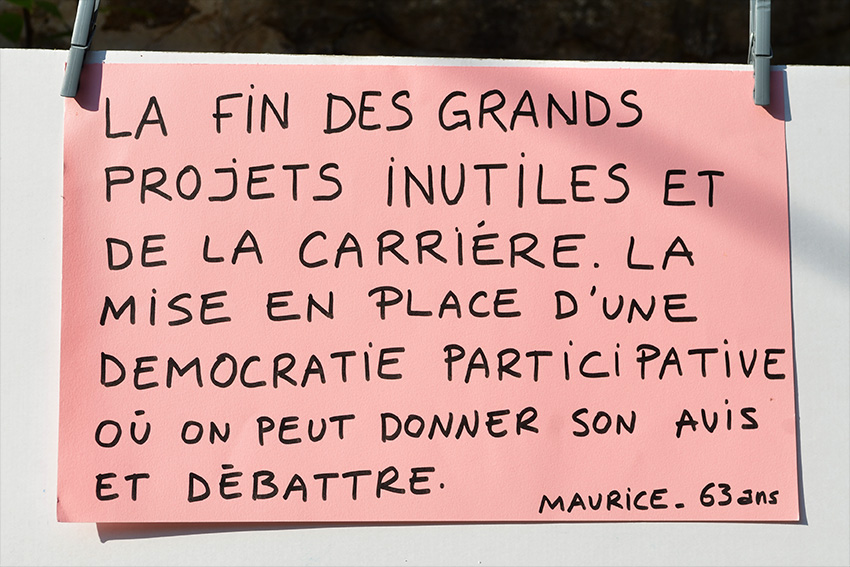 LA FIN DES GRANDS
PROJETS INUTILES ET
DE LA CARRIÉRE. LA
MISE EN PLACE D'UNE
DEMOCRATIE PARTICIPATIVE
OÙ ON PEUT DONNER SON AVIS
ET DÉBATTRE.
MAURICE - 63 ans